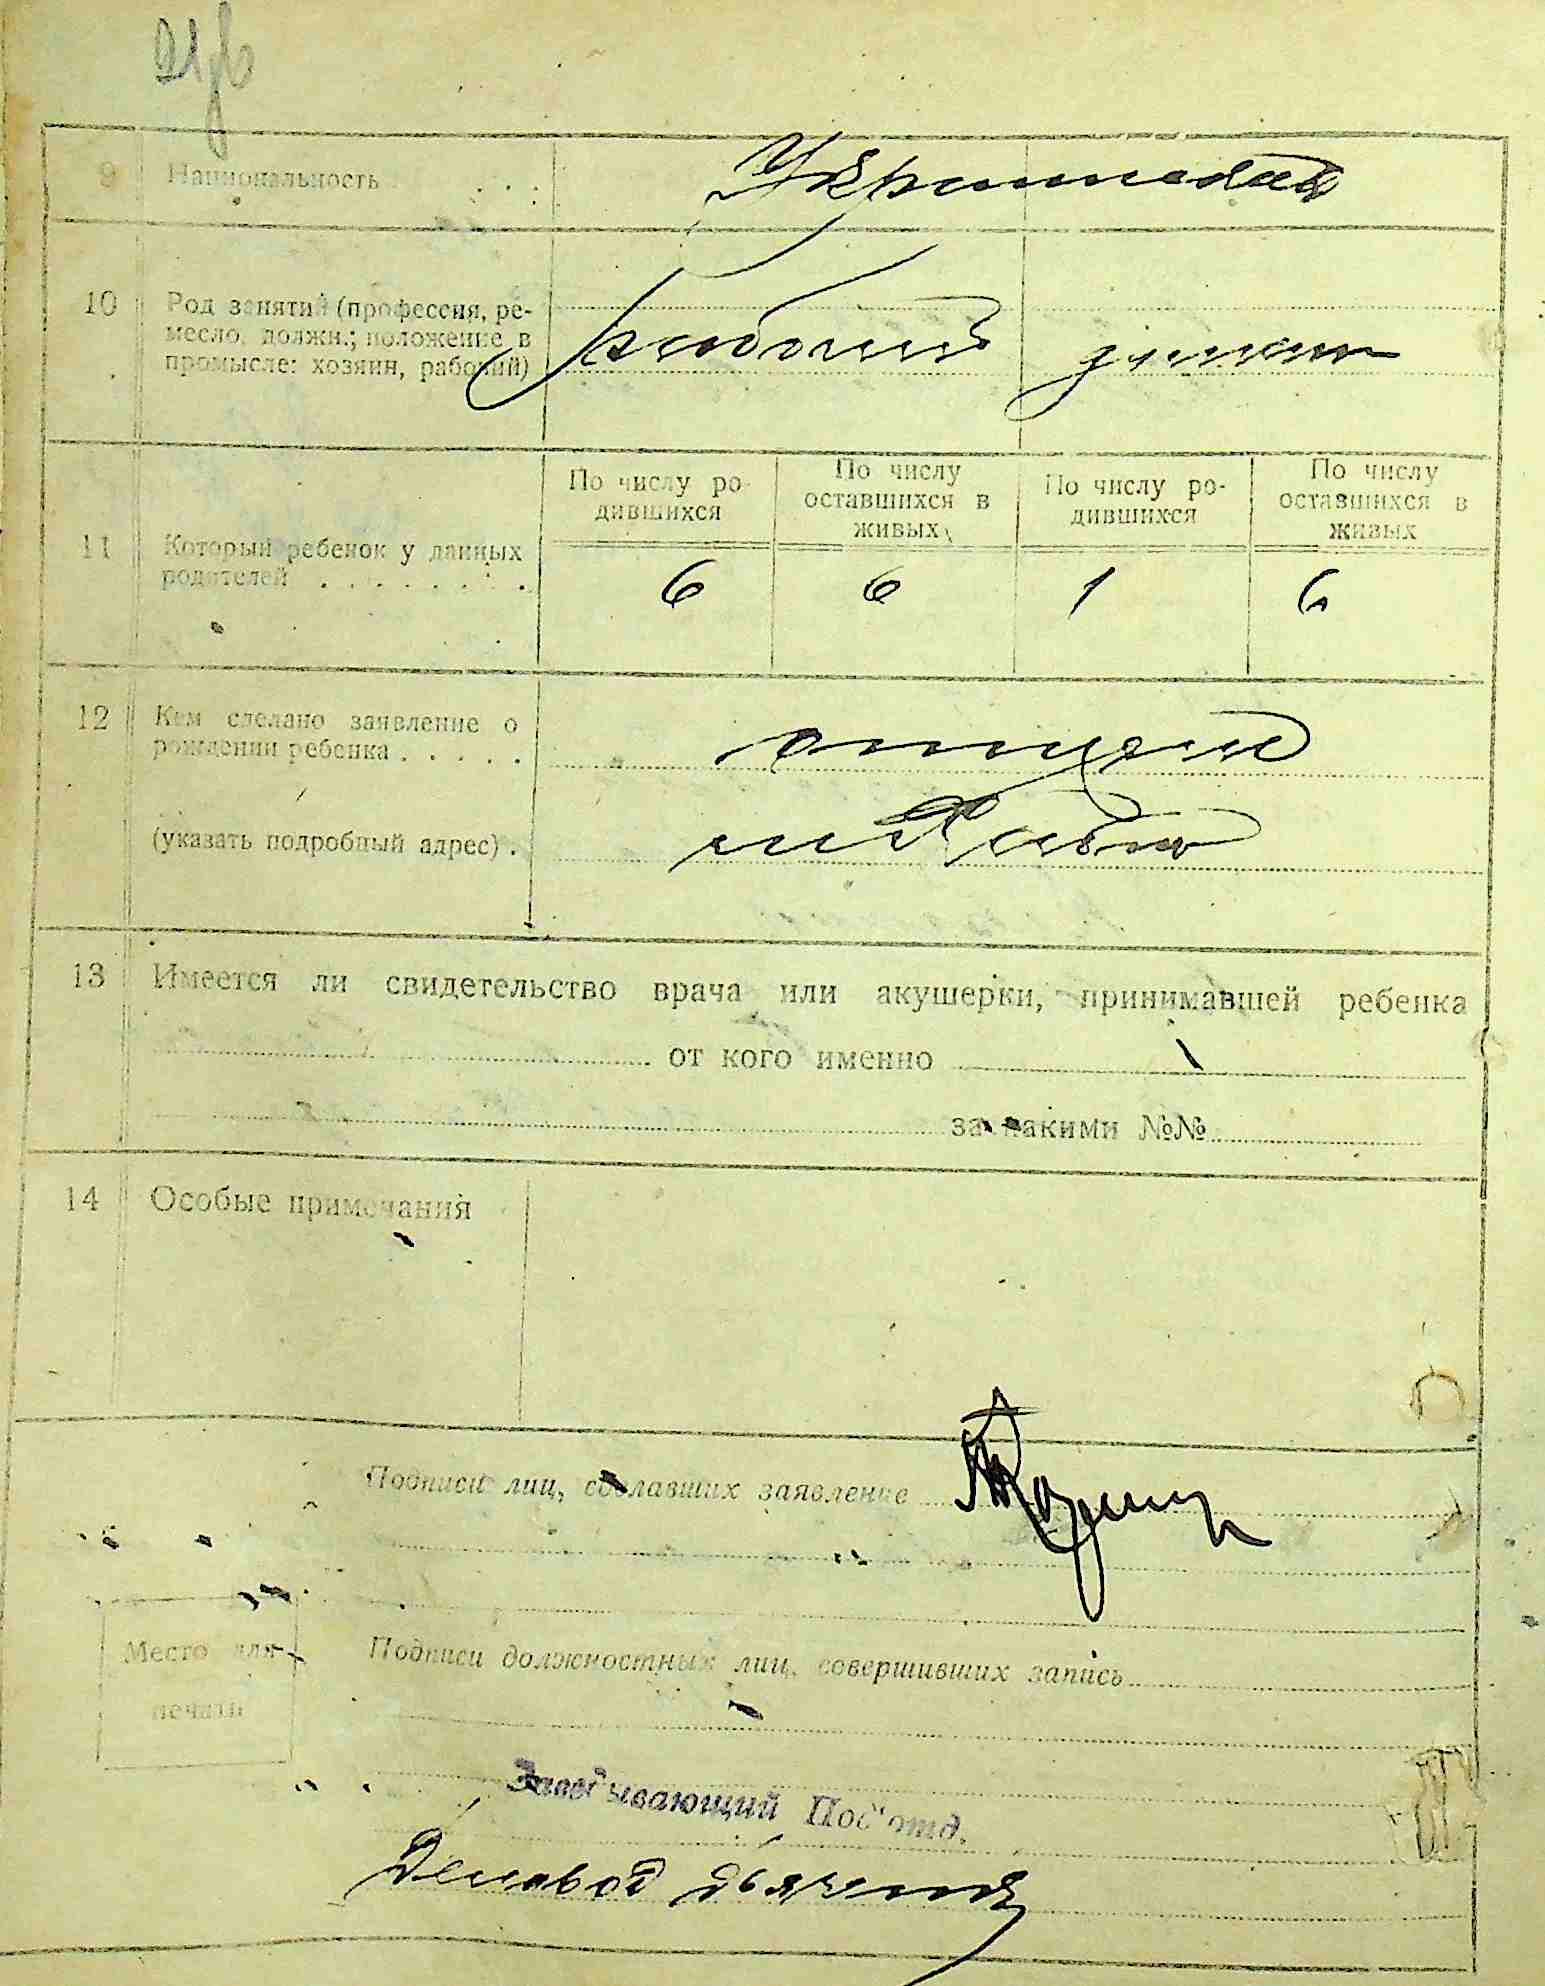 9 Национальность . . .
10 Род занятий (профессия, ре-
месло, должн.; положение в
промысле: хозяин, рабочий)
рабочий
По числу ро-
дившихся
По числу
оставшихся в
живых
По числу ро-
дившихся
По числу
оставшихся в
живых
11 Который ребенок у данных
родителей . . . . . . . .
6 6 1 6
12 Кем сделано заявление о
рождении ребенка . . . . .
отцем
(указать подробный адрес) .
13 Имеется ли свидетельство врача или акушерки, принимавшей ребенка
от кого именно
за какими №№
14 Особые примечания
Подписи лиц, сделавших заявление
Место для
печати
Подписи должностных лиц, совершивших запись
Заведывающий Под'отд.
Деловод